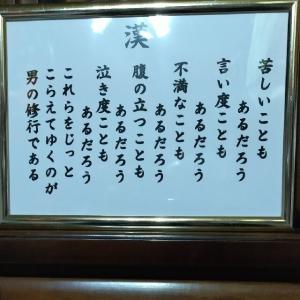 漢
苦しいことも
あるだろう
言い度ことも
あるだろう
不満なことも
あるだろう
腹の立つことも
あるだろう
泣き度ことも
あるだろう
これらをじっと
こらえてゆくのが
男の修行である